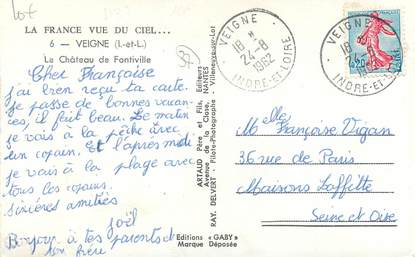 Lot
LA FRANCE VUE DU CIEL...
6 — VEIGNE (I.-et-L.)
Le Château de Fontiville
37
Chef Françoise
j'ai bien reçu ta carte.
Je passe de bonnes vacan-
ces, il fait beau. Le matin
je vais à la pêche avec
un copain. Et l'après midi
je vais à la plage avec
tous les copains.
sincères amitiés
Joël
Bonjour à tes parents et
ton frère
ARTAUD Père et Fils, Editeurs
Avenue de la Close, NANTES
RAY. DELVERT - Pilote-Photographe - Villeneuve-sur-Lot
Editions « GABY »
Marque Déposée
VEIGNE
18 H
24-8
1962
INDRE-ET-LOIRE
VEIGNE
18
24-8
0,20
Melle Françoise Vigan
36 rue de Paris
Maisons Laffitte
Seine et Oise